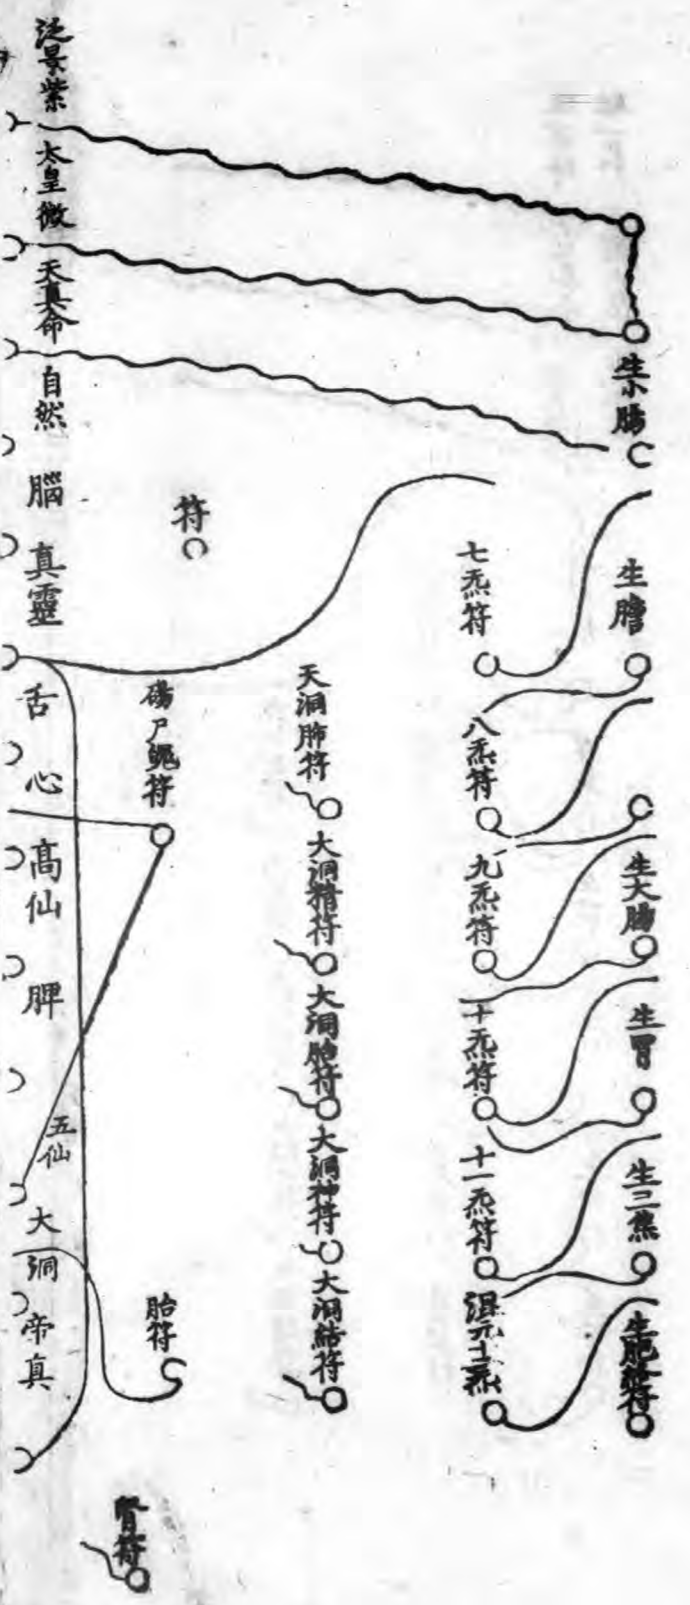 生小腸
生膽
生大腸
生胃
生三焦
七炁符
八炁符
九炁符
十炁符
十一炁符
混元十二炁
天洞肺符
大洞精符
大洞胎符
大洞神符
大洞結符
符
尸鬼符
胎符
腎符
泛景紫
太皇微
天真命
自然
腦
真靈
舌
心
高仙
脾
五仙
大洞
帝真